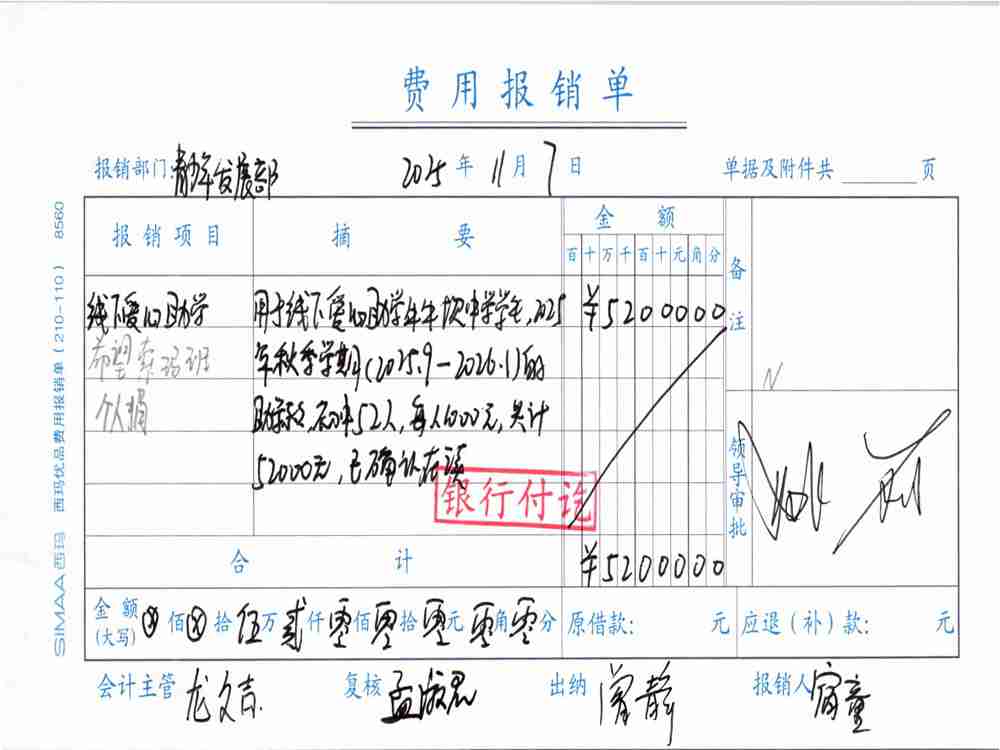 费用报销单
报销部门:青年发展部 2025年11月7日 单据及附件共 页
报销项目 摘要 金额 备注
百十万千百十元角分
线下爱心助学 用于线下爱心助学牛牛坝中学学生,2025 ¥5200000
希望索玛班 年秋季学期(2025.9-2026.1)的
个人捐 助学款,初中52人,每人1000元,共计
52000元,已确认在读
银行付讫
领导审批
合计 ¥5200000
金额(大写) ⊗佰⊗拾伍万贰仟零佰零拾零元零角零分 原借款: 元 应退(补)款: 元
会计主管 龙文吉 复核 孟淑君 出纳 曾静 报销人 童
SIMAA 西玛 西玛优品费用报销单(210-110) 8560